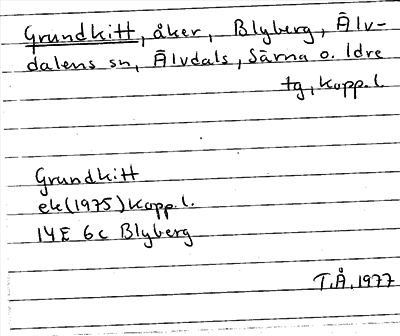 Grundkitt, åker, Blyberg, Älv-
dalens sn, Älvdals, Särna o. Idre
tg, Kopp.l.
Grundkitt
ek(1975)Kopp.l.
14E 6c Blyberg
T.Å. 1977